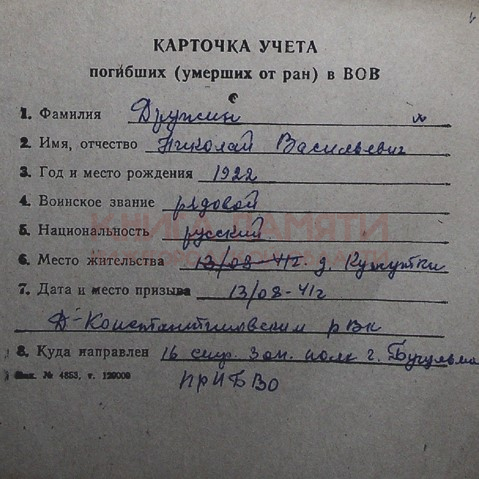 КАРТОЧКА УЧЕТА
погибших (умерших от ран) в ВОВ
1. Фамилия Дружин
2. Имя, отчество Николай Васильевич
3. Год и место рождения 1922
4. Воинское звание рядовой
5. Национальность русский
КНИГА ПАМЯТИ
6. Место жительства 13/08-41г. д. Кужутки
7. Дата и место призыва 13/08-41г
Д-Константиновским РВК
8. Куда направлен 16 стр. Зап. полк г. Бугульма
Зак. № 4853, т. 120000
ПРИБВО